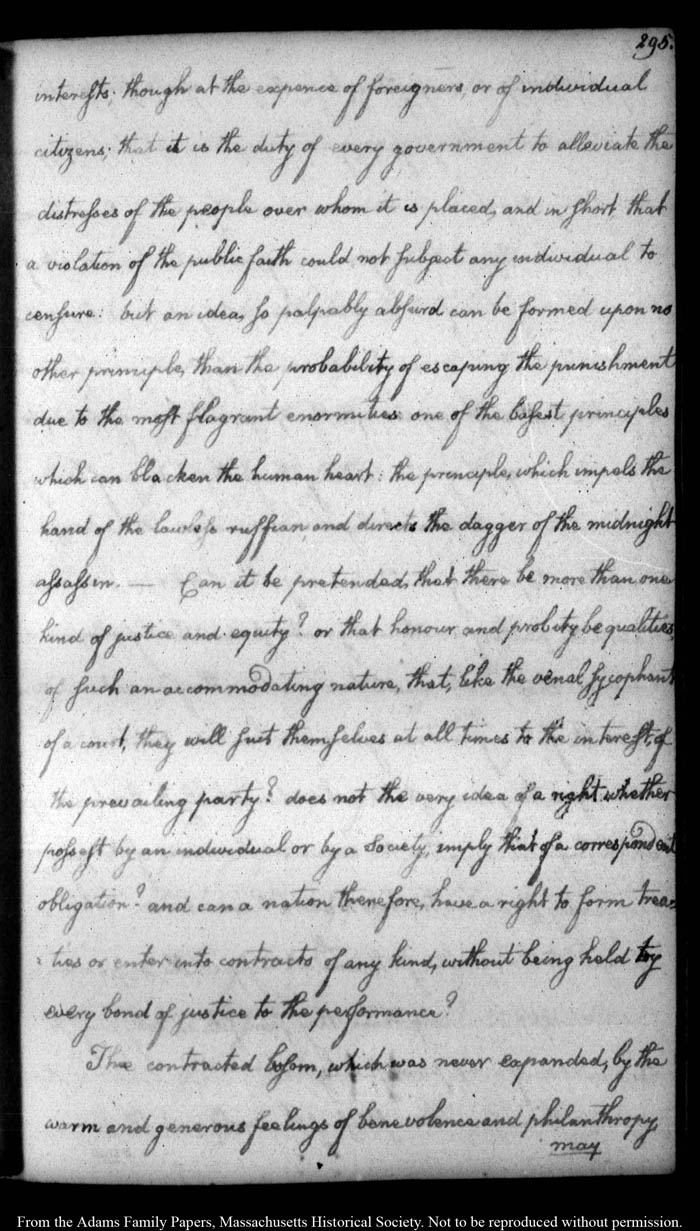 295.
interests; though at the expence of foreigners, or of individual
citizens; that it is the duty of every government to alleviate the
distresses of the people over whom it is placed, and in short that
a violation of the public faith could not subject any individual to
censure: but an idea, so palpably absurd can be formed upon no
other principle, than the probability of escaping the punishment
due to the most flagrant enormities: one of the basest principles
which can blacken the human heart: the principle, which impels the
hand of the lawless ruffian, and directs the dagger of the midnight
assassin. — Can it be pretended, that there be more than one
kind of justice and equity? or that honour and probity be qualities,
of such an accommodating nature, that, like the venal sycophant
of a court, they will suit themselves at all times to the interest, of
the prevailing party? does not the very idea of a right whether
possest by an individual or by a Society, imply that of a correspondent
obligation? and can a nation therefore, have a right to form trea=
=ties or enter into contracts of any kind, without being held by
every bond of justice to the performance?
The contracted bosom, which was never expanded, by the
warm and generous feelings of benevolence and philanthropy,
may
From the Adams Family Papers, Massachusetts Historical Society. Not to be reproduced without permission.